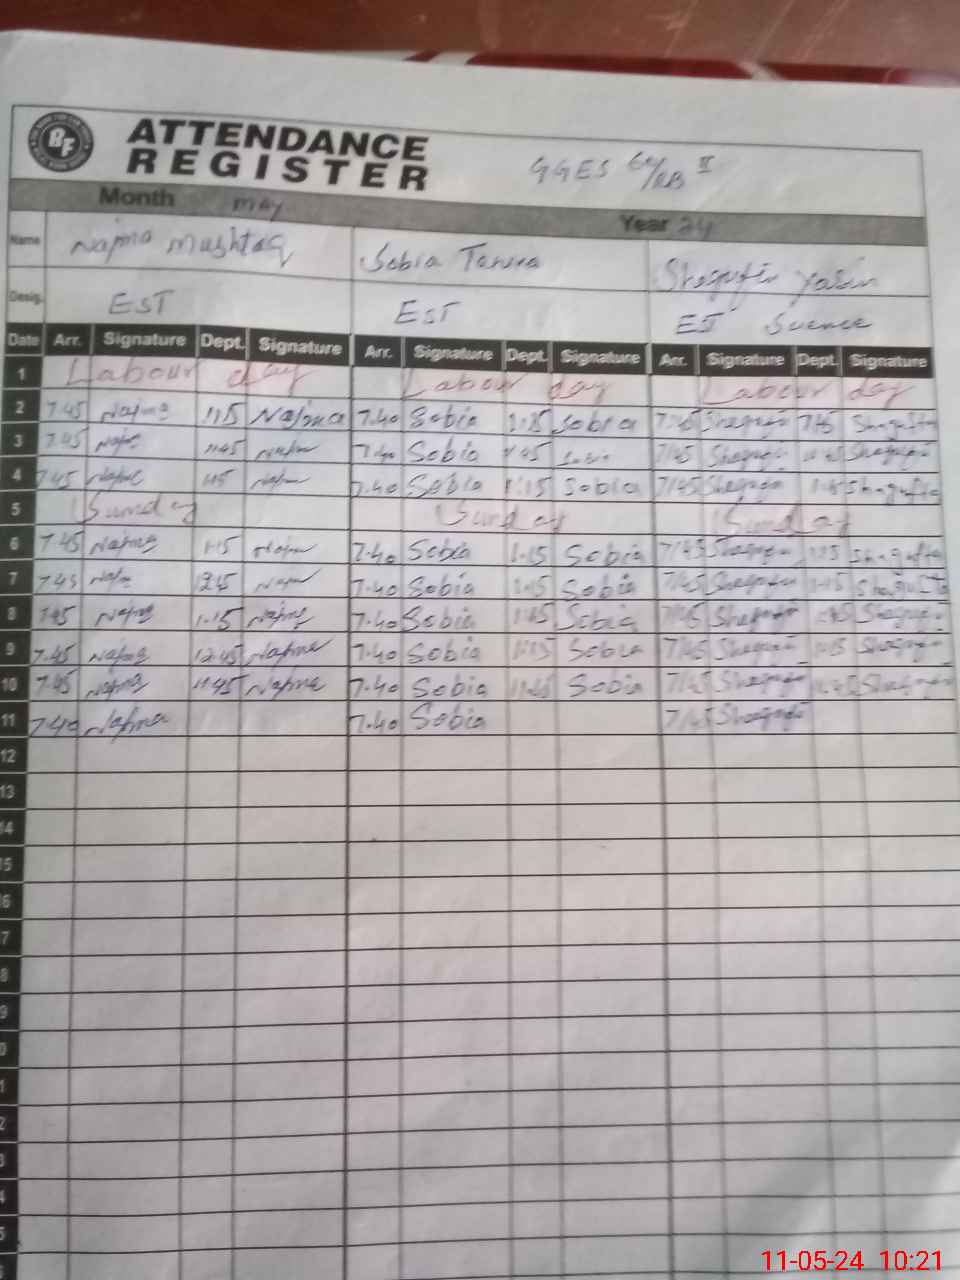 ATTENDANCE
REGISTER
GGES
Month may Year 24
Name Najma Mushtaq Sobia Shagufta Yasin
Desig. EST EST EST Science
Date Arr. Signature Dept. Signature Arr. Signature Dept. Signature Arr. Signature Dept. Signature
1 Labour day Labour day Labour day
2 7.45 Najma 1:15 Najma 7.40 Sobia 1.15 Sobia 7:45 Shagufta Shagufta
3 7.45 Najma 11:45 Najma 7.40 Sobia Sobia 7/45 Shagufta Shagufta
4 7.45 Najma Najma 7.40 Sobia 1:15 Sobia 7/45 Shagufta Shagufta
5 Sunday Sunday Sunday
6 7.45 Najma 1.15 Najma 7.40 Sobia 1.15 Sobia 7/45 Shagufta Shagufta
7 7.45 Najma 12.45 Najma 7.40 Sobia 1.15 Sobia 7/45 Shagufta 1.15 Shagufta
8 7.45 Najma 1.15 Najma 7.40 Sobia Sobia 7/45 Shagufta Shagufta
9 7.45 Najma 12.45 Najma 7.40 Sobia 1:15 Sobia 7/45 Shagufta Shagufta
10 7.45 Najma 11.45 Najma 7.40 Sobia Sobia 7/45 Shagufta Shagufta
11 7.40 Najma 7.40 Sobia 7/45 Shagufta
12
13
14
5
6
7
8
9
0
1
2
3
4
5
11-05-24 10:21